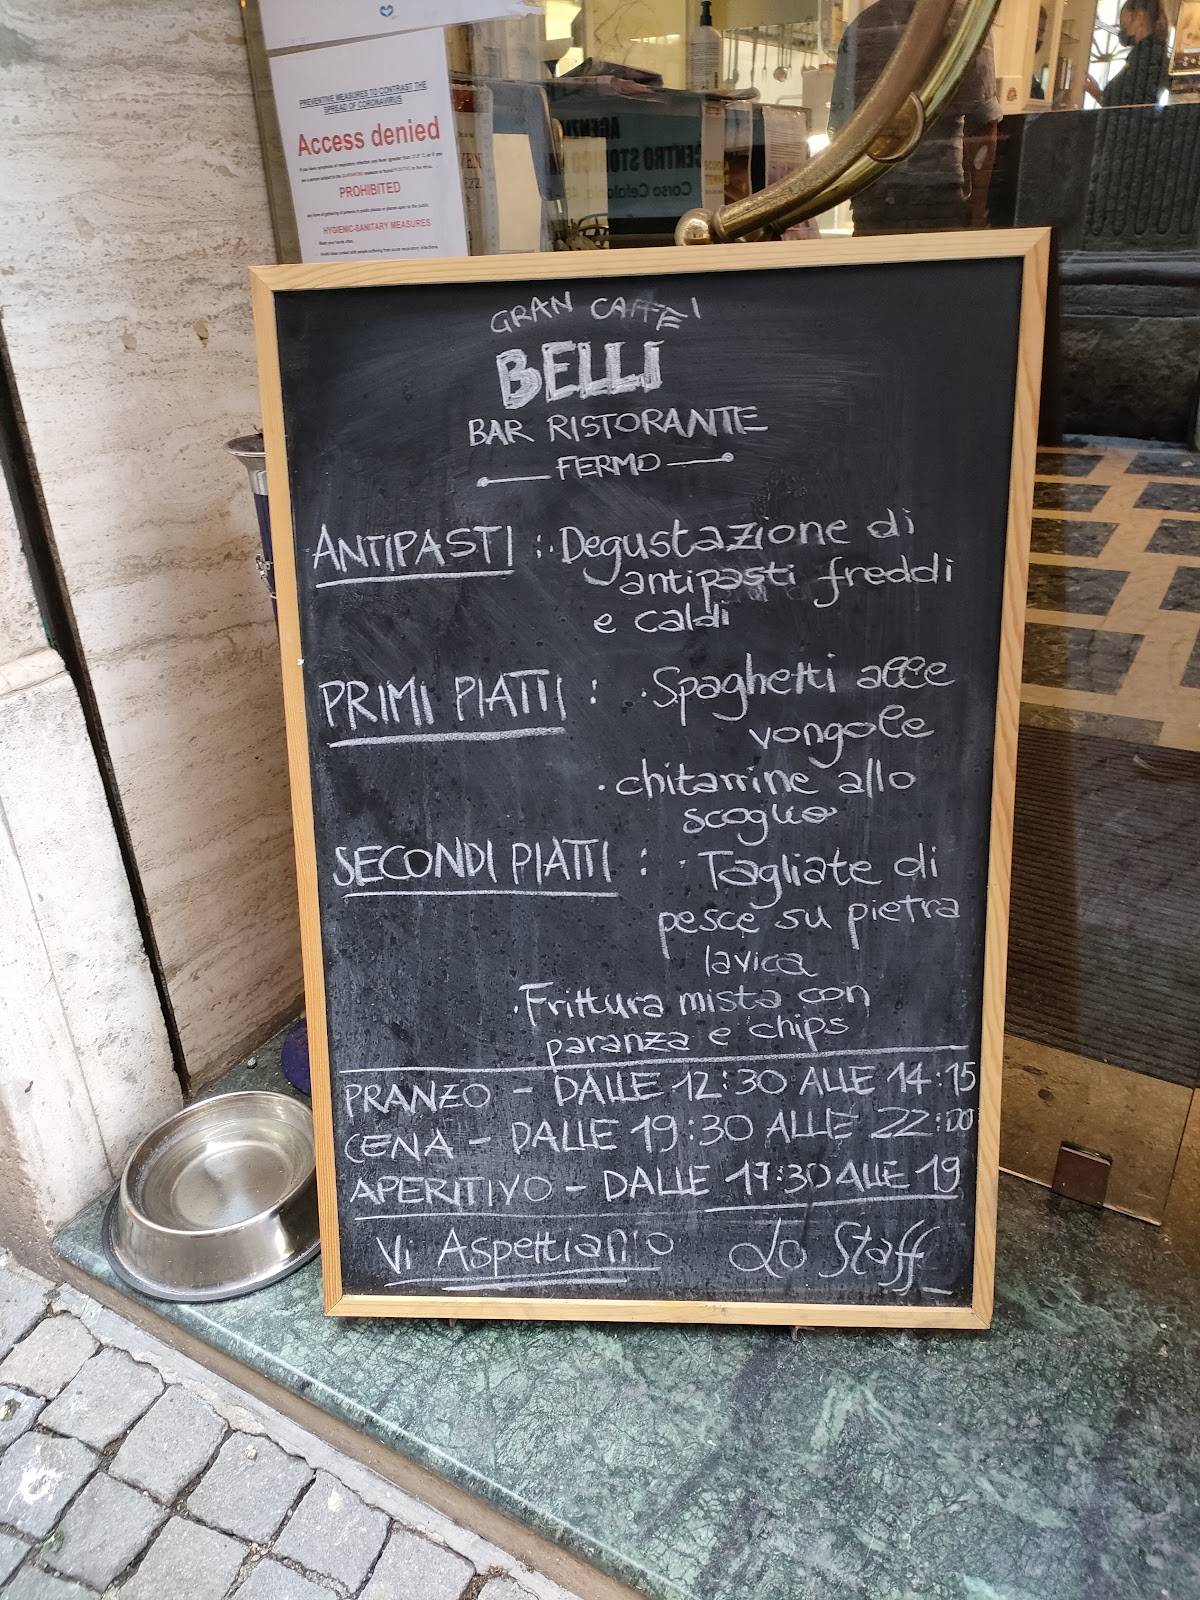 PREVENTIVE MEASURES TO CONTRAST THE
SPREAD OF CORONAVIRUS
Access denied
PROHIBITED
any form of gathering of persons in public places or places open to the public
HYGIENIC-SANITARY MEASURES
Wash your hands often
AGENZI
CENTRO STORICO
Corso Cefalonia
GRAN CAFFE'
BELLI
BAR RISTORANTE
FERMO
ANTIPASTI : · Degustazione di
antipasti freddi
e caldi
PRIMI PIATTI : · Spaghetti alle
vongole
· chitarrine allo
scoglio
SECONDI PIATTI : · Tagliate di
pesce su pietra
lavica
· Frittura mista con
paranza e chips
PRANZO - DALLE 12:30 ALLE 14:15
CENA - DALLE 19:30 ALLE 22:00
APERITIVO - DALLE 17:30 ALLE 19
Vi Aspettiamo Lo Staff